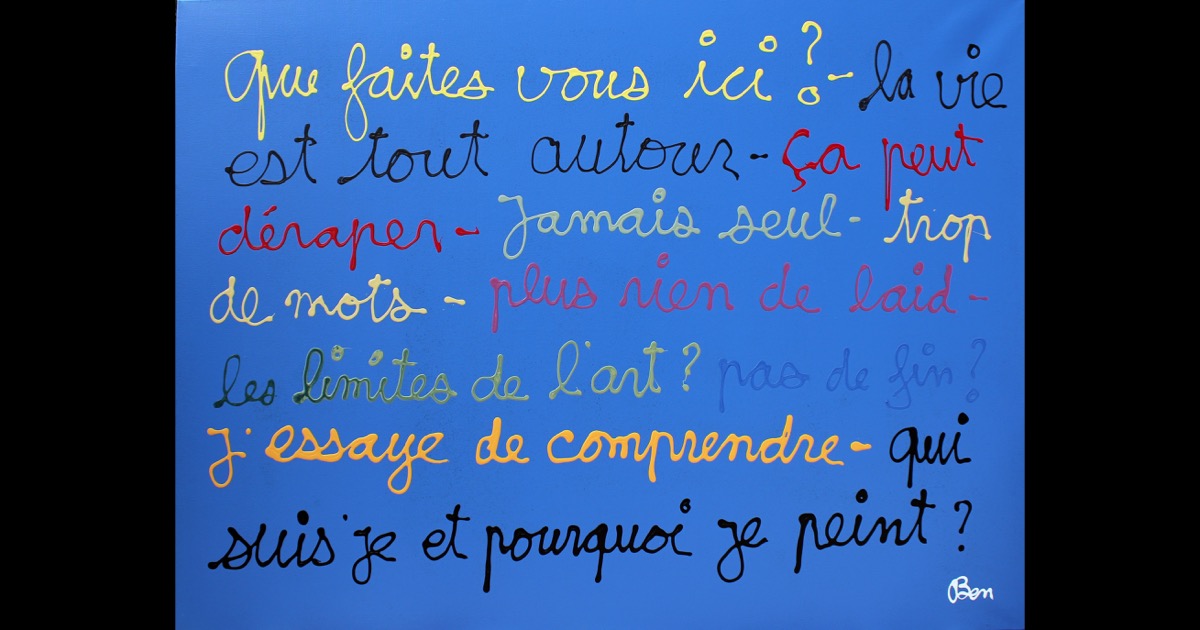 Que faites vous ici ? - la vie
est tout autour - ça peut
déraper - Jamais seul - trop
de mots - plus rien de laid -
les limites de l'art ? pas de fin ?
J'essaye de comprendre - qui
suis'je et pourquoi je peint ?
Ben